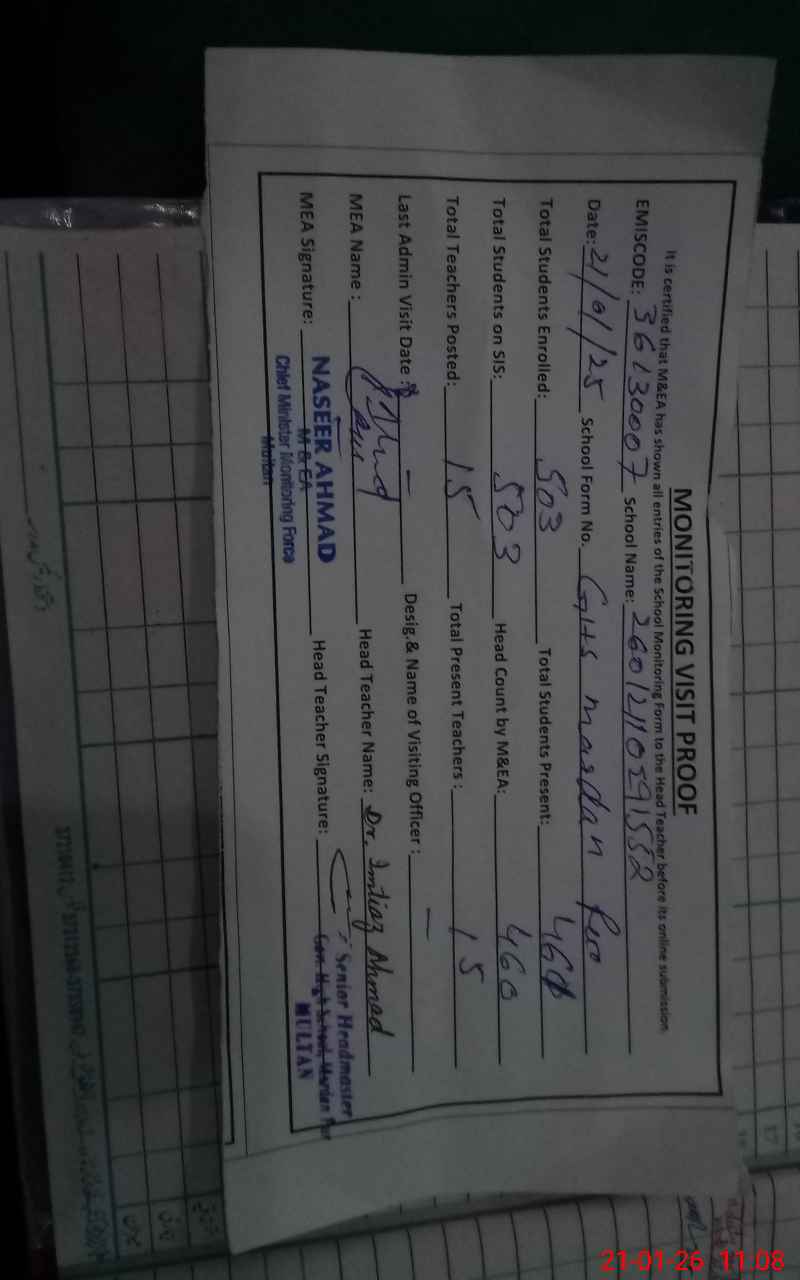 MONITORING VISIT PROOF
It is certified that M&EA has shown all entries of the School Monitoring Form to the Head Teacher before its online submission
EMISCODE: 36130007 School Name: 260121105291552
Date: 21/01/25 School Form No. GHS mardan Pur
Total Students Enrolled: 503 Total Students Present: 460
Total Students on SIS: 503 Head Count by M&EA: 460
Total Teachers Posted: 15 Total Present Teachers : 15
Last Admin Visit Date : — Desig.& Name of Visiting Officer : —
MEA Name : Head Teacher Name: Dr. Imtiaz Ahmad
MEA Signature: Head Teacher Signature:
NASEER AHMAD
M & EA
Chief Minister Monitoring Force
Multan
Senior Headmaster
Gov. High School, Mardan Pur
MULTAN
21-01-26 11:08